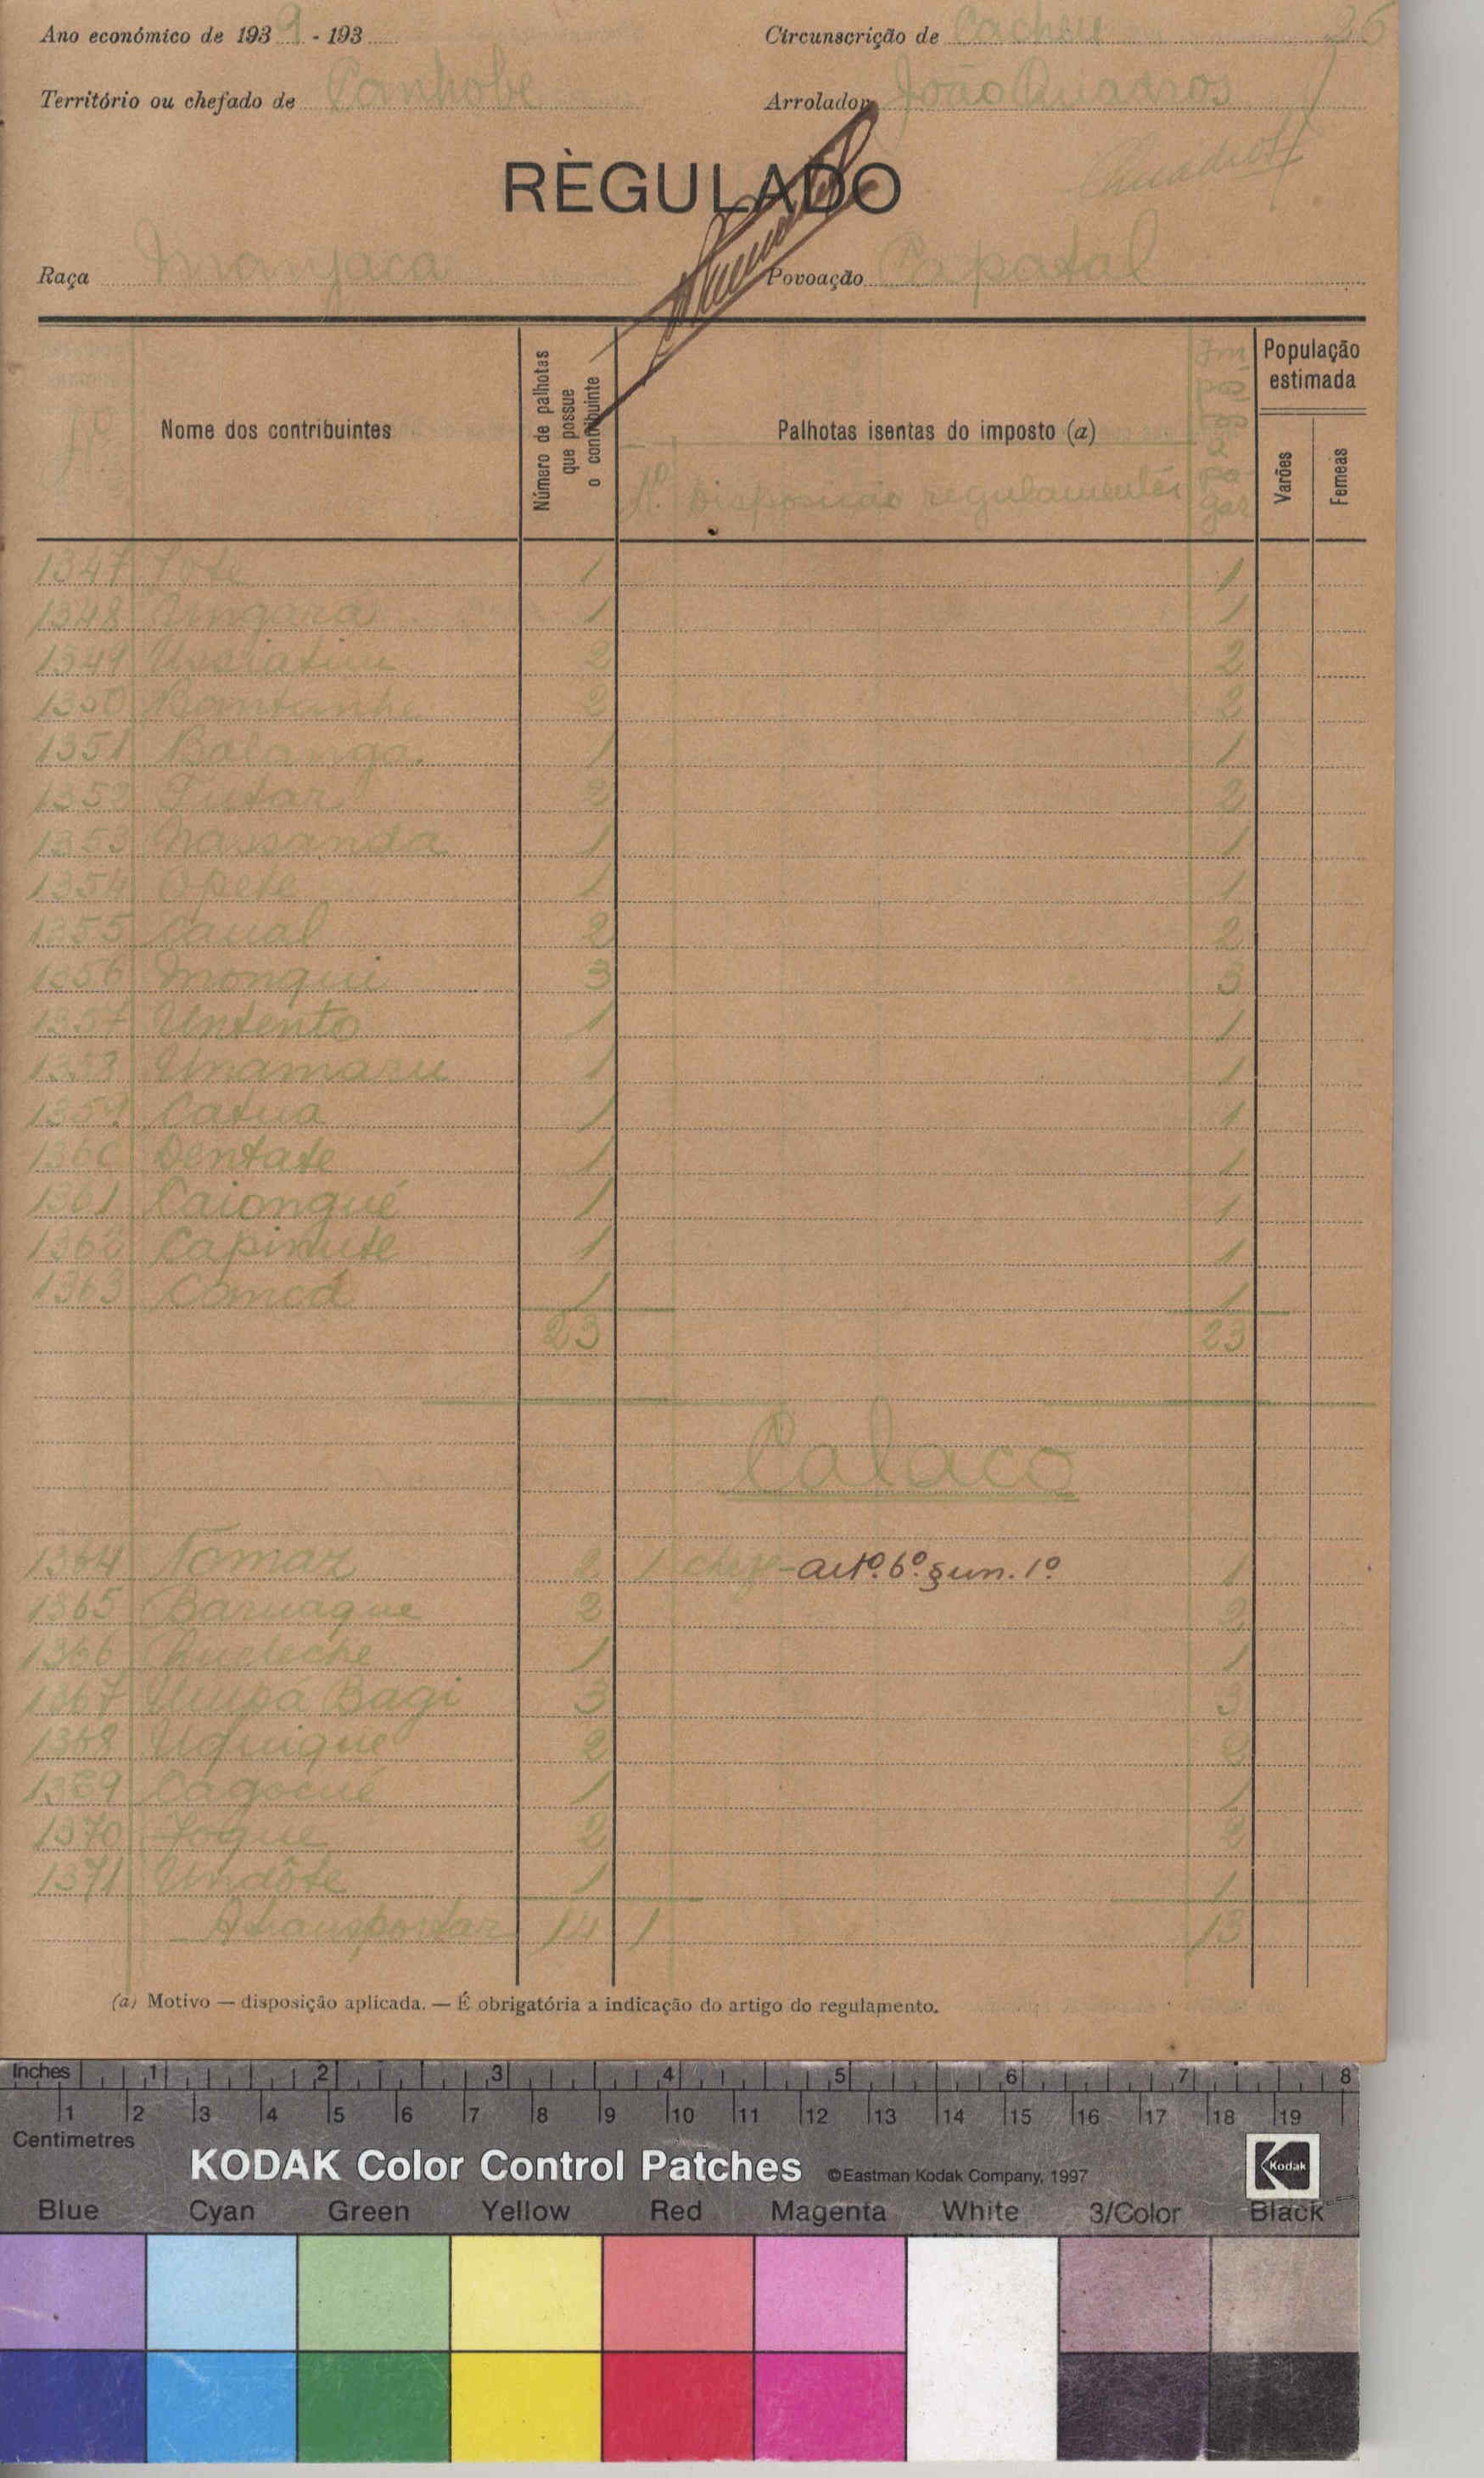 Ano económico de 1939 - 193 Circunscrição de Cacheu 36
Território ou chefado de Canhobe Arrolador João Quadros
Quadros
RÈGULADO
Raça Manjaca Povoação Capatal
Nº Nome dos contribuintes Número de palhotas que possue o contribuinte Palhotas isentas do imposto (a) Impostos a pagar População estimada
Nº Disposição regulamentar Varões Femeas
1347 1 1
1348 Ungara 1 1
1349 2 2
1350 Bontunhe 2 2
1351 Balanga. 1 1
1352 Tutar 2 2
1353 Nassanda 1 1
1354 Opete 1 1
1355 Caual 2 2
1356 Monqui 3 3
1357 Untento 1 1
1358 Unamaru 1 1
1359 Catua 1 1
1360 Dentate 1 1
1361 Caiongué 1 1
1362 Capinute 1 1
1363 1 1
23 23
Calaco
1364 Tomar 2 1 chefe - artº. 6º. § un. 1º 1
1365 Baruaque 2 2
1366 1 1
1367 Umpá Bagi 3 3
1368 2 2
1369 Cagocué 1 1
1370 Joque 2 2
1371 Undôte 1 1
A transportar 14 1 13
(a) Motivo — disposição aplicada. — É obrigatória a indicação do artigo do regulamento.
Inches 1 2 3 4 5 6 7 8
1 2 3 4 5 6 7 8 9 10 11 12 13 14 15 16 17 18 19
Centimetres
KODAK Color Control Patches ©Eastman Kodak Company, 1997 Kodak
Blue Cyan Green Yellow Red Magenta White 3/Color Black